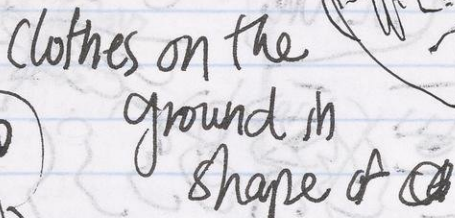 Clothes on the
ground in
shape of